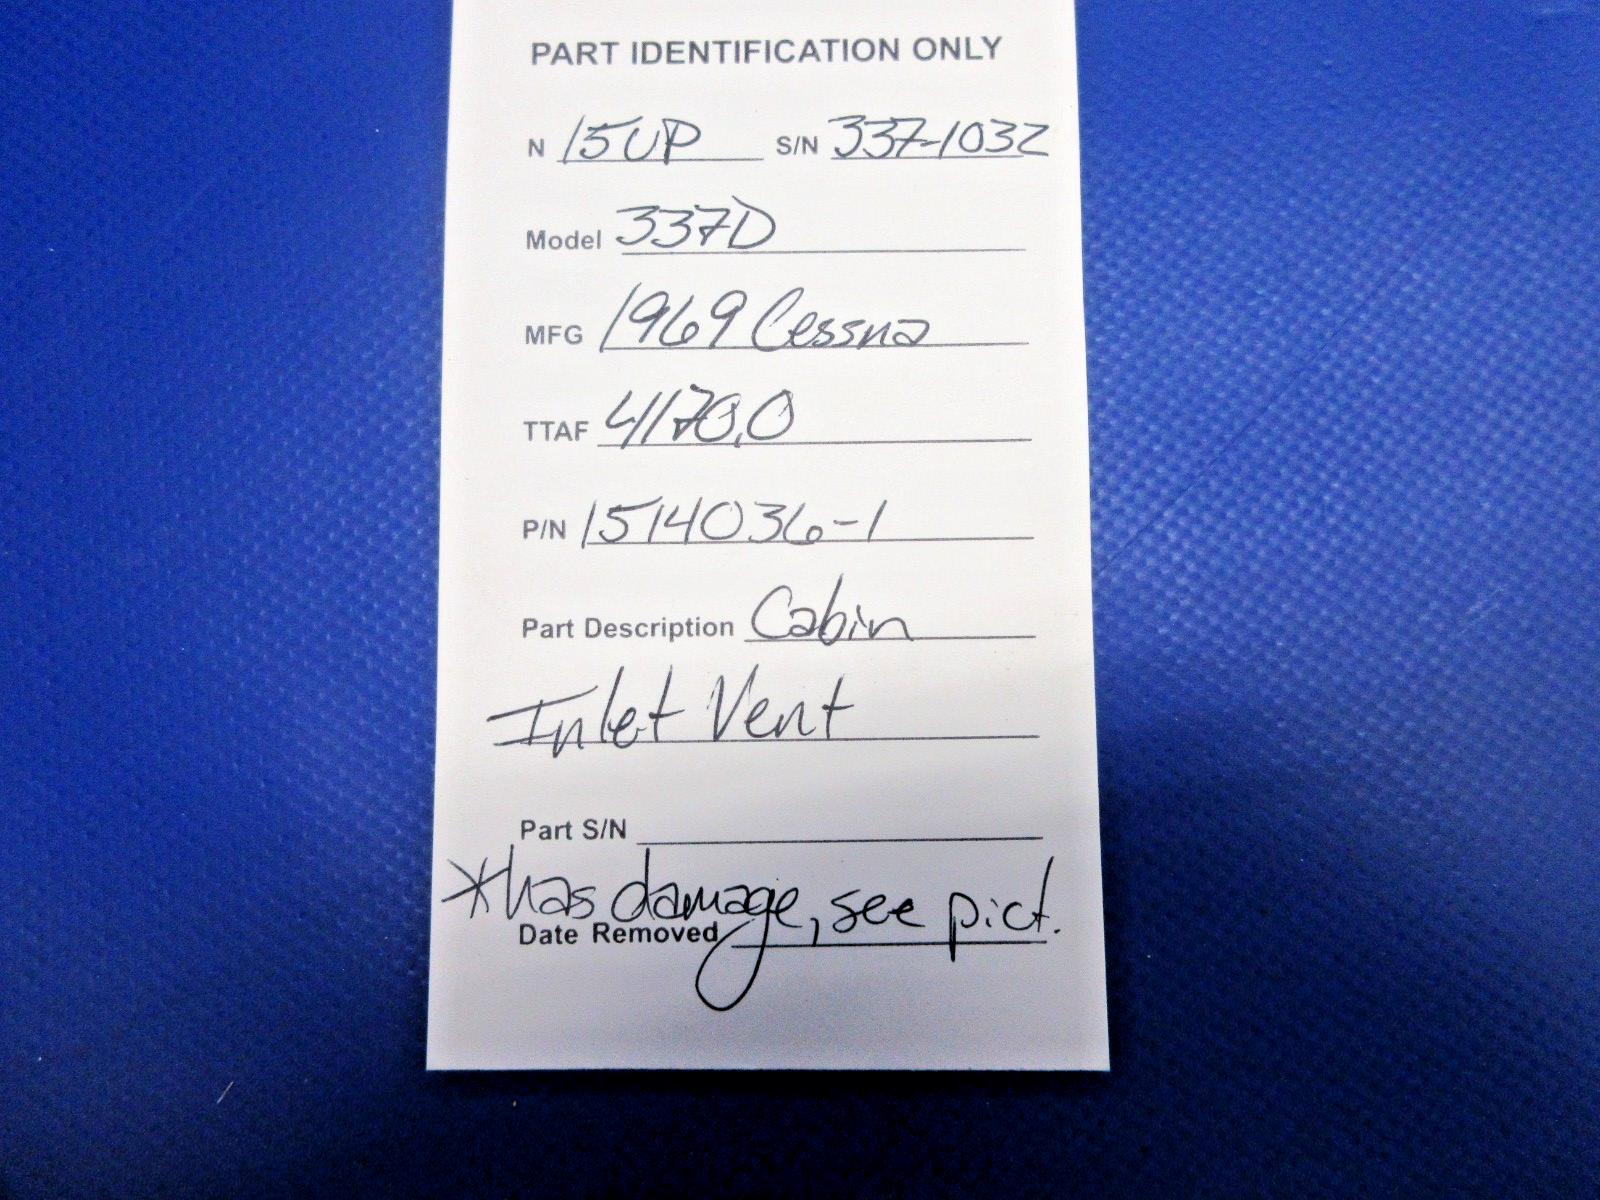 PART IDENTIFICATION ONLY
N 15UP S/N 337-1032
Model 337D
MFG 1969 Cessna
TTAF 4170.0
P/N 1514036-1
Part Description Cabin
Inlet Vent
Part S/N
*has damage, see pict.
Date Removed